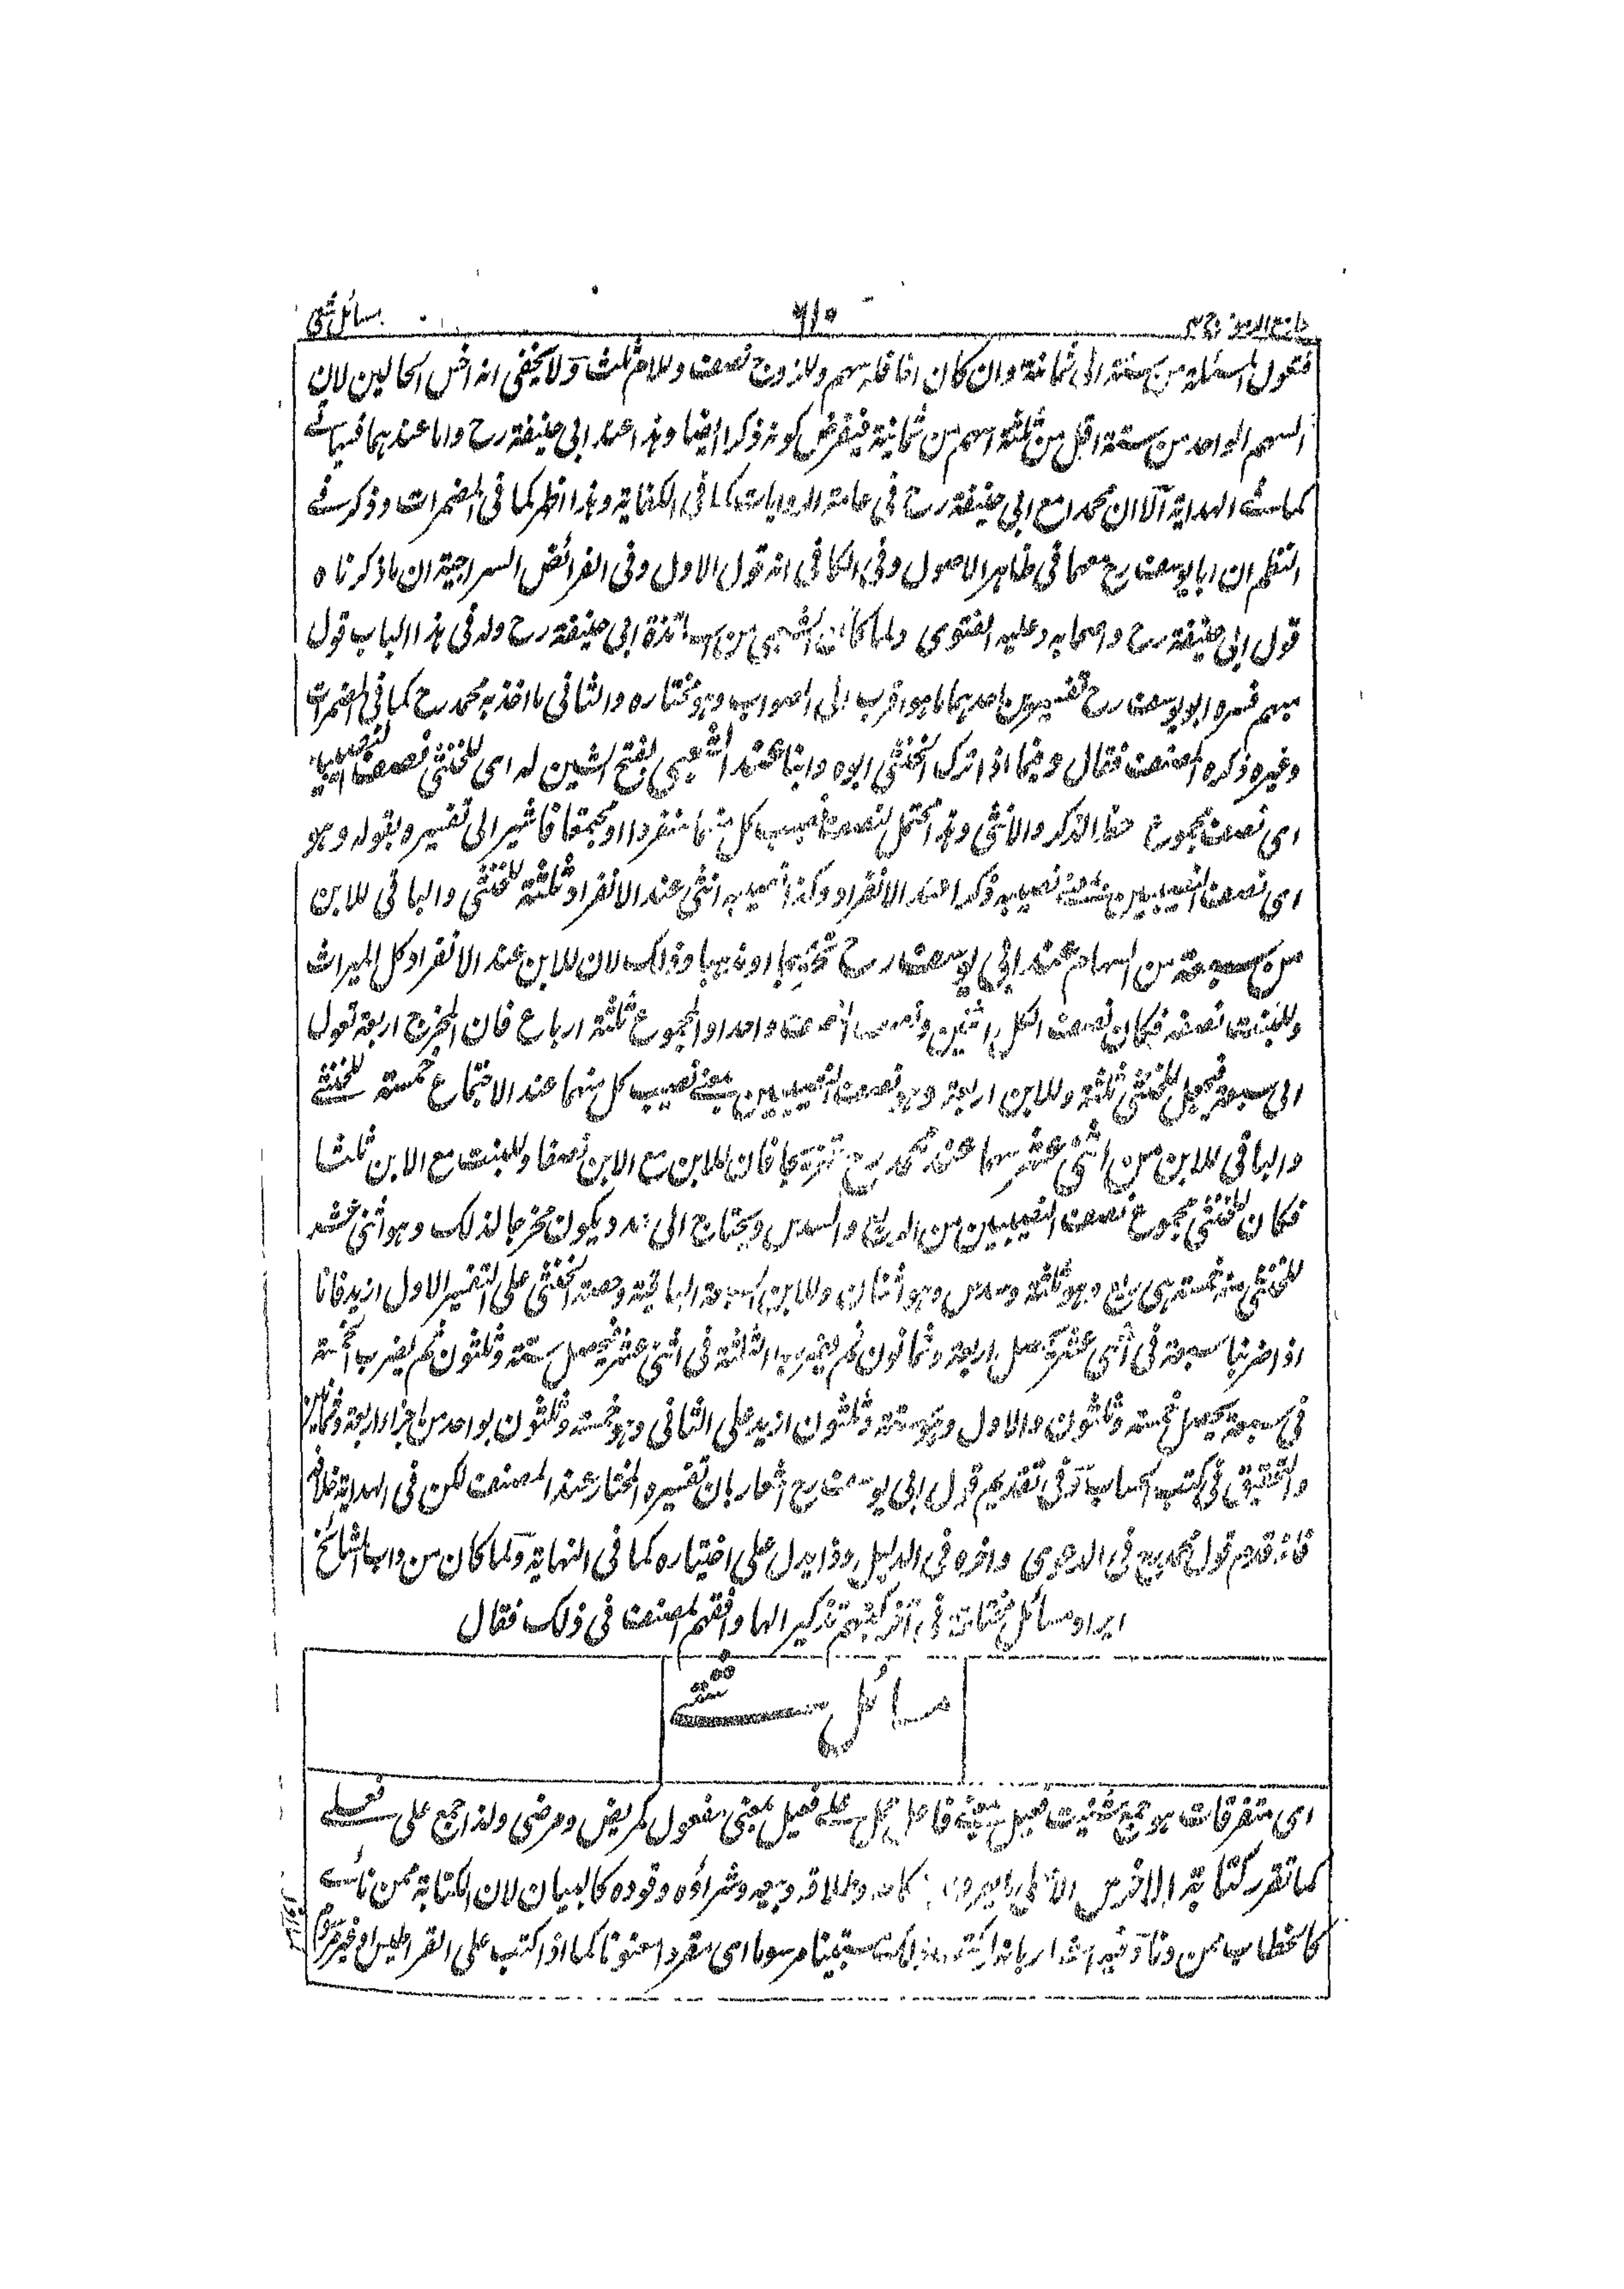 جامع الرموز ج ٣ ٦١٠ مسائل شتى
فتعول المسئلة من ستة الى ثمانية وان كان اخا فله سهم وللزوج نصف وللام ثلث ولا يخفى انه اخس الحالين لان
السهم الواحد من ستة اقل من ثلثة اسهم من ثمانية فيفرض كونه ذكرا ايضا وهذا عند ابى حنيفة رح واما عندهما
كما فے الهداية الا ان محمدا مع ابى حنيفة رح فى عامة الروايات كما فى الكفاية وهذا اظهر كما فى المضمرات وذكر فے
النظم ان ابا يوسف رح معهما فى ظاهر الاصول وفى الكافى انه قول الاول وفى الفرائض السراجية ان ما ذكرناه
قول ابى حنيفة رح واصحابه وعليه الفتوى ولما كان الشعبى من اساتذة ابى حنيفة رح وله فى هذا الباب قول
مبهم فسره ابو يوسف رح تفسيرين احدهما ما هو اقرب الى الصواب وهو مختاره والثانى ما اخذ به محمد رح كما فى المضمرات
وغيره ذكره المصنف فقال وفيما اذا ترك الخنثى ابوه وابنا عند الشعبى بفتح الشين له اى للخنثى نصف النصيبين
اى نصف مجموع حظ الذكر والانثى وهذا يحتمل نصف نصيب كل منهما منفردا او مجتمعا فاشير الى تفسيره بقوله وهو
اى نصف النصيبين يعنے نصيبه ذكرا عند الانفراد وكذا نصيبه انثى عند الانفراد ثلثة للخنثى والباقى للابن
من سبعة من السهام عند ابى يوسف رح تخريجا او مذهبا وذلك لان للابن عند الانفراد كل الميراث
وللبنت نصفه فكان نصف الكل اثنين ونصف النصف واحدا والمجموع ثلثة ارباع فان المخرج اربعة تعول
الى سبعة فيجعل للخنثى ثلثة وللابن اربعة وهو نصف النصيبين يعنے نصيب كل منهما عند الاجتماع خمسة للخنثے
والباقى للابن من اثنى عشر سهما عند محمد رح تخريجا فان للابن مع الابن نصفا وللبنت مع الابن ثلثا
فكان للخنثى مجموع نصف النصيبين من الربع والسدس ويحتاج الى عدد يكون مخرجا لذلك وهو اثنى عشر
للخنثى منه خمسة هى ربع وهو ثلثة وسدس وهو اثنان وللابن السبعة الباقية وحصة الخنثى على التفسير الاول ازيد فانا
اذا ضربنا سبعة فى اثنى عشر يحصل اربعة وثمانون ثم يضرب الثلثة فى اثنى عشر يحصل ستة وثلثون ثم يضرب الخمسة
فى سبعة يحصل خمسة وثلثون والاول وهو ستة وثلثون ازيد على الثانى وهو خمسة وثلثون بواحد من اجزاء اربعة وثمانين
والتحقيق فى كتب الحساب وفى تقديم قول ابى يوسف رح اشعار بان تفسيره المختار عند المصنف لكن فى الهداية خلافه
فانه قدم قول محمد رح فى الدعوى واخره فى الدليل وذا يدل على اختياره كما فى النهاية ولما كان من داب المشائخ
ايراد مسائل مختلفة فى آخر كتبهم تذكيرا لها وافقهم المصنف فى ذلك فقال
مسائل شتے
اى متفرقات هو جمع شتيت فعيل بمعنے فاعل حمل علے فعيل بمعنى مفعول كمريض ومرضى ولذا جمع على فعلے
كما تقرر كتابة الاخرس وطلاقه وبيعه وشراؤه وقوده كالبيان لان الكتابة ممن نائے
كالخطاب ممن دنا وفيه اشعار بانه مستبينا مرسوما اى مقردا معنونا كما اذا كتب على القراطيس او غير مرسوم